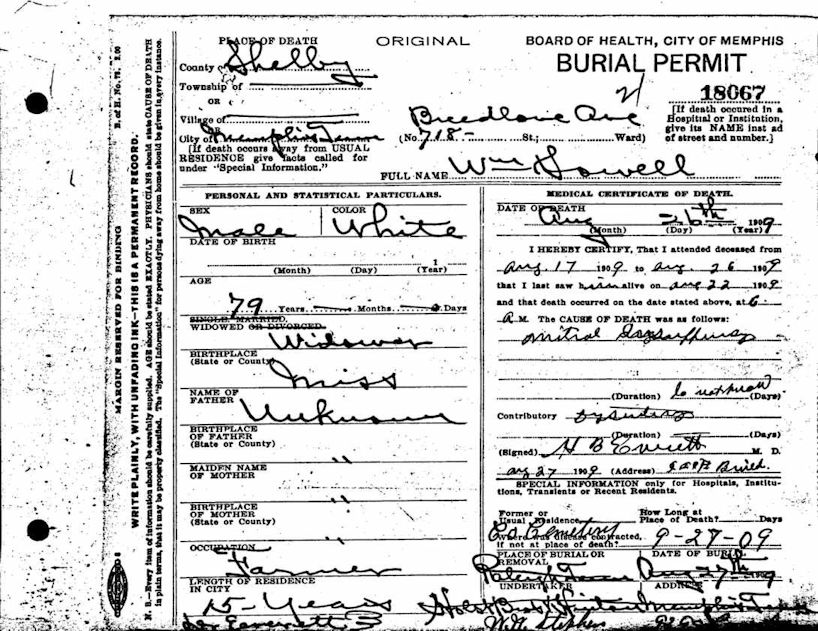 MARGIN RESERVED FOR BINDING
B. of H. No. 78. 2.00
WRITE PLAINLY, WITH UNFADING INK—THIS IS A PERMANENT RECORD.
N. B.—Every item of information should be carefully supplied. AGE should be stated EXACTLY. PHYSICIANS should state CAUSE OF DEATH
in plain terms, that it may be properly classified. The "Special Information" for persons dying away from home should be given in every instance.
PLACE OF DEATH
County of Shelby
Township of
OR
Village of
OR
City of Memphis Tenn
[If death occurs away from USUAL
RESIDENCE give facts called for
under "Special Information."]
ORIGINAL
BOARD OF HEALTH, CITY OF MEMPHIS
BURIAL PERMIT
21
18067
[If death occured in a
Hospital or Institution,
give its NAME inst ad
of street and number.]
Breedlove Ave
(No. 718- St.; Ward)
FULL NAME Wm Howell
PERSONAL AND STATISTICAL PARTICULARS.
SEX Male
COLOR White
DATE OF BIRTH
(Month) (Day) (Year)
1
AGE
79 Years Months Days
SINGLE. MARRIED.
WIDOWED OR DIVORCED.
Widower
BIRTHPLACE
(State or County)
Miss
NAME OF
FATHER
Unknown
BIRTHPLACE
OF FATHER
(State or County)
"
MAIDEN NAME
OF MOTHER
"
BIRTHPLACE
OF MOTHER
(State or County)
"
OCCUPATION
Farmer
LENGTH OF RESIDENCE
IN CITY
15-Years
MEDICAL CERTIFICATE OF DEATH.
DATE OF DEATH
Aug 26th 1909
(Month) (Day) (Year)
I HEREBY CERTIFY, That I attended deceased from
Aug. 17 1909 to Aug. 26 1909
that I last saw him alive on Aug 22 1909
and that death occurred on the date stated above, at 6
A M. The CAUSE OF DEATH was as follows:
Mitral
(Duration) Do not know (Days)
Contributory
(Duration) (Days)
(Signed) H B Everett M. D.
Aug 27 1909 (Address)
SPECIAL INFORMATION only for Hospitals, Institu-
tions, Transients or Recent Residents.
Former or
Usual Residence
How Long at
Place of Death? Days
Co Cemetery
Where was disease contracted,
if not at place of death?
9-27-09
PLACE OF BURIAL OR
REMOVAL
Raleigh Tenn
DATE OF BURIAL
Aug 27th 1909
UNDERTAKER
ADDRESS
Memphis Tenn